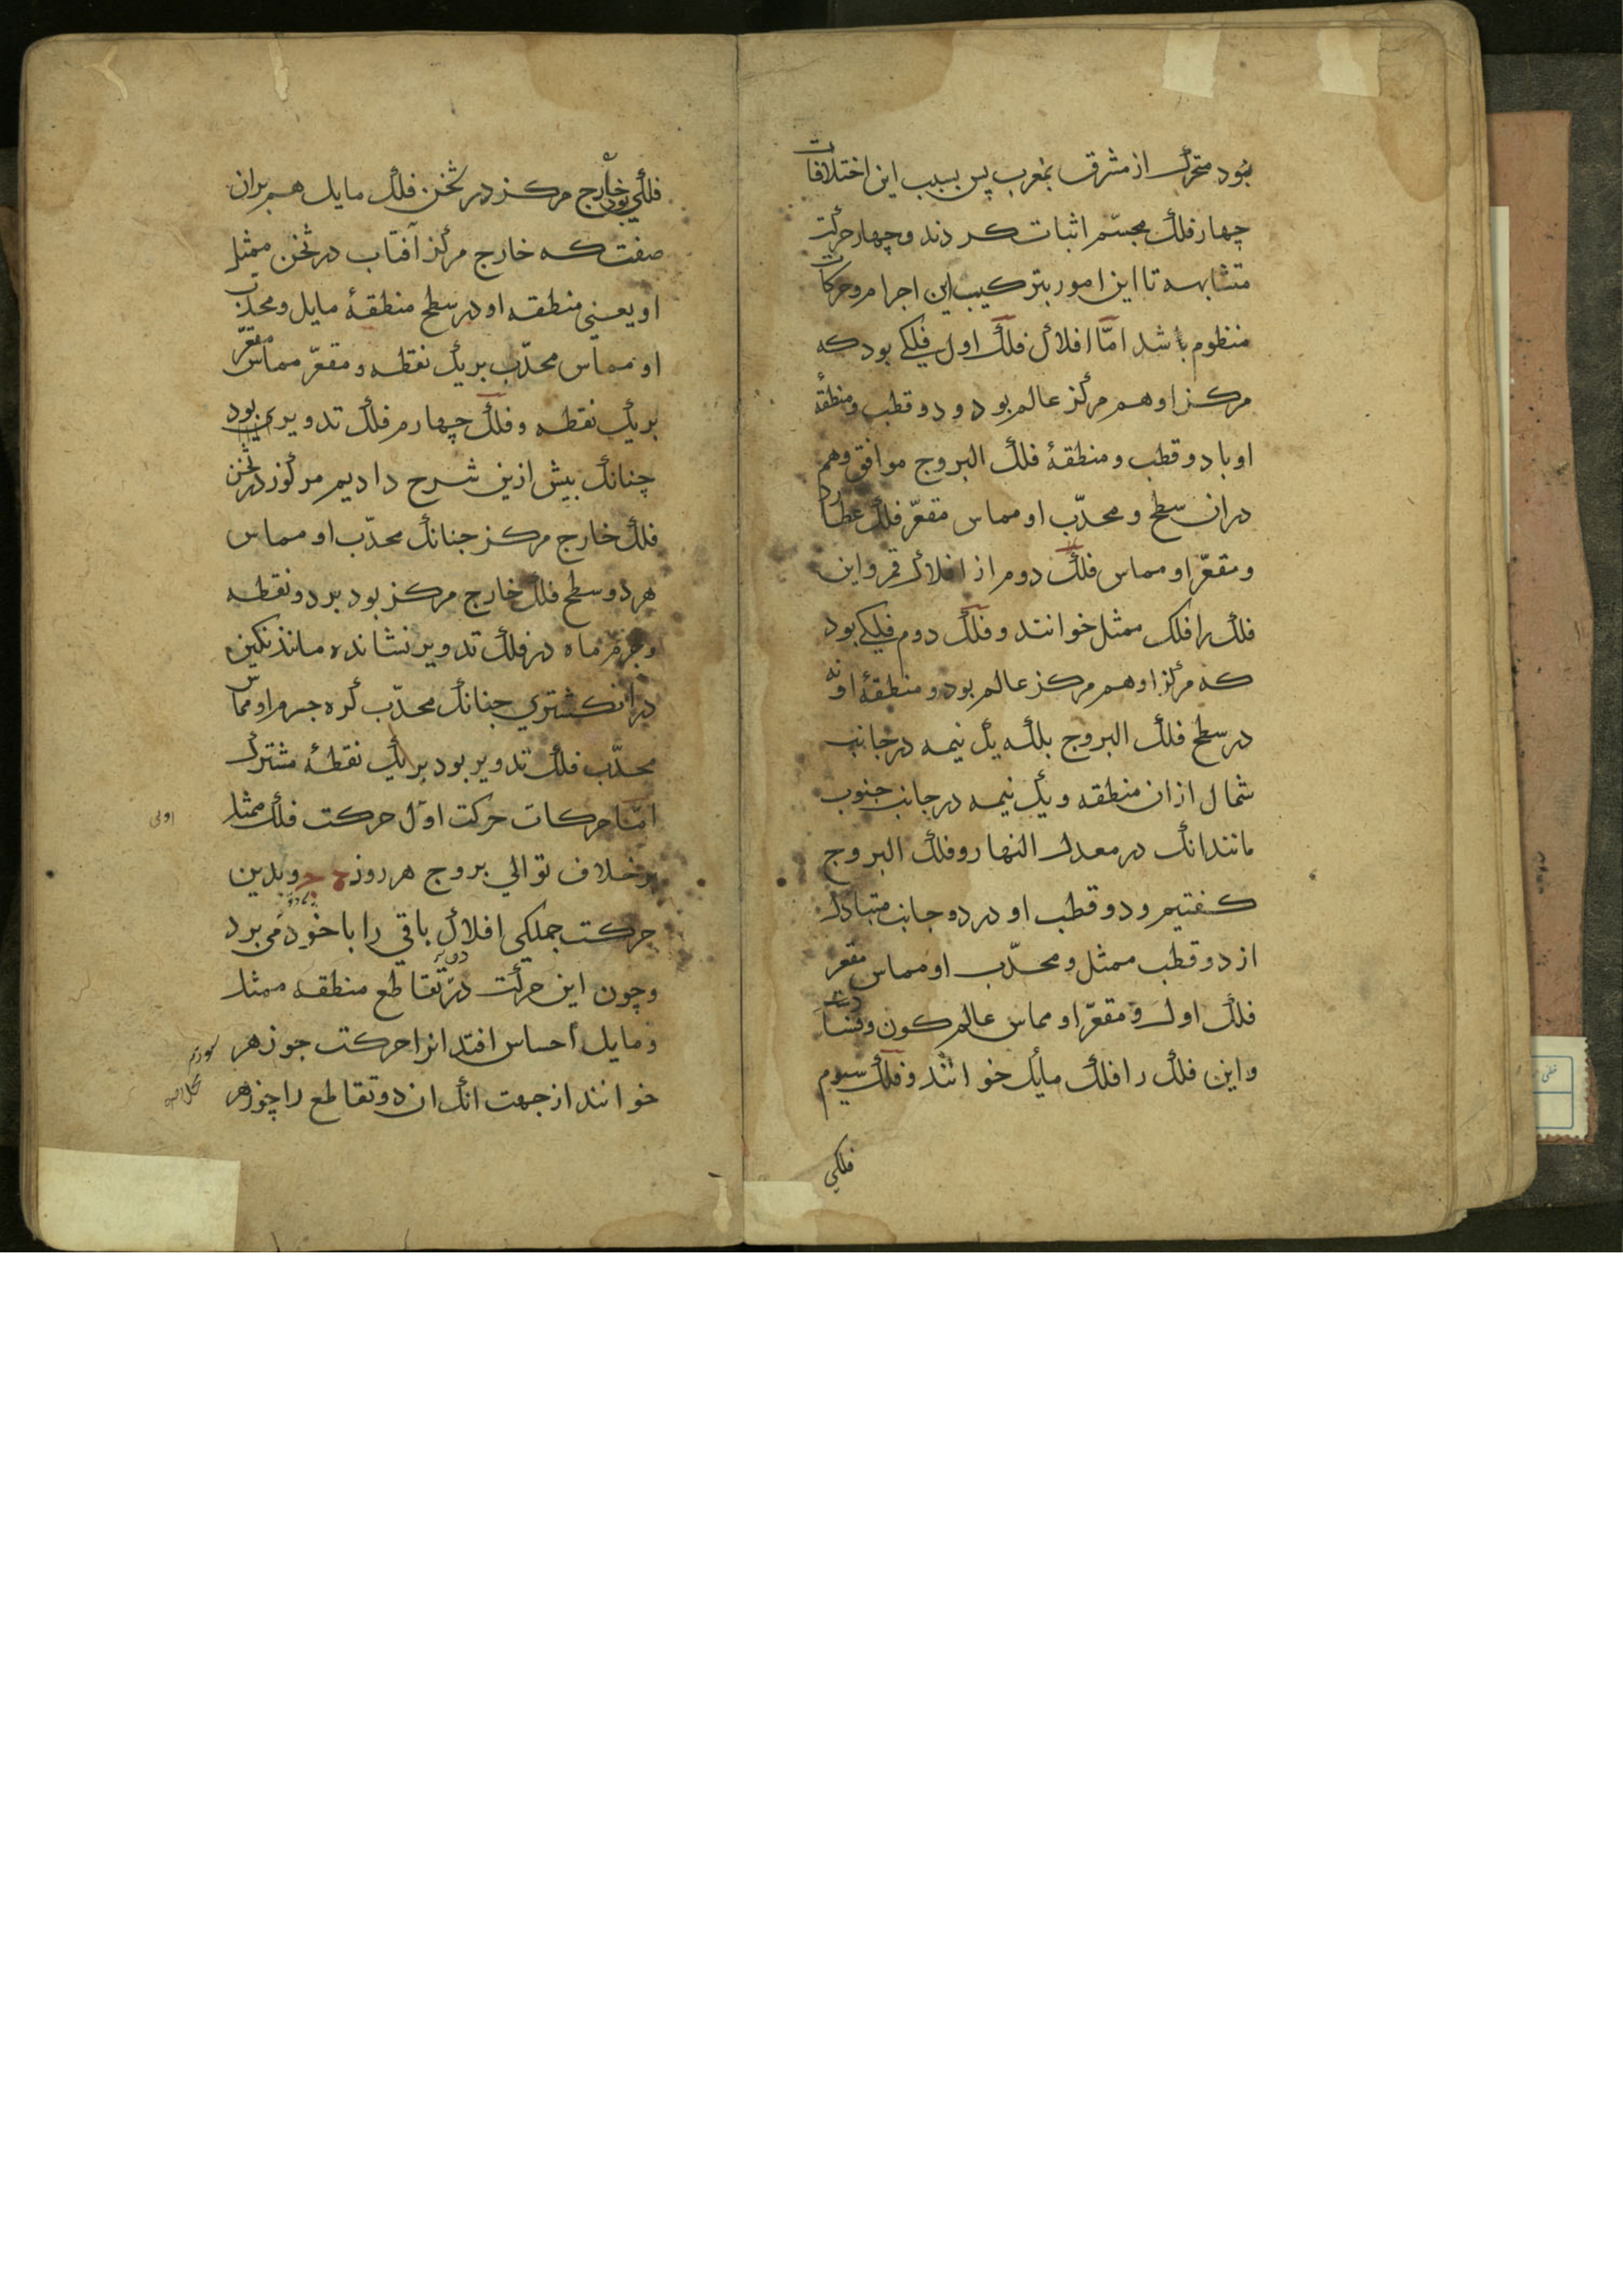 بود متحرک از مشرق بمغرب پس بسبب این اختلافات
چهار فلک مجسّم اثبات کردند و چهار حرکت
متشابهه تا این امور بترکیب این اجرام و حرکات
منظوم باشد امّا افلاک فلک اول فلکی بود که
مرکز او هم مرکز عالم بود و دو قطب و منطقهٔ
او با دو قطب و منطقهٔ فلک البروج موافق و هم
در ان سطح و محدّب او مماس مقعّر فلک عطارد
و مقعّر او مماس فلک دوم از افلاک قمر و این
فلک را فلک ممثل خوانند و فلک دوم فلکی بود
که مرکز او هم مرکز عالم بود و منطقهٔ او نه
در سطح فلک البروج بلکه یک نیمه در جانب
شمال از ان منطقه و یک نیمه در جانب جنوب
مانند انک در معدل النهار و فلک البروج
کفتیم و دو قطب او در دو جانب متبادل
از دو قطب ممثل و محدّب او مماس مقعر
فلک اول و مقعّر او مماس عالم کون و فسادست
و این فلک را فلک مایل خوانند و فلک سیوم
فلکی
فلکی بود خارج مرکز در ثخن فلک مایل هم بران
صفت که خارج مرکز آفتاب در ثخن ممثل
او یعنی منطقه او در سطح منطقهٔ مایل و محدّب
او مماس محدّب بر یک نقطه و مقعّر مماس مقعّر
بر یک نقطه و فلک چهارم فلک تدویر بود
چنانک بیش ازین شرح دادیم مرکوز در ثخن
فلک خارج مرکز جنانک محدّب او مماس
هر دو سطح فلک خارج مرکز بود بر دو نقطه
و جرم ماه در فلک تدویر نشانده مانند نکین
در انکشتری جنانک محدّب کره جرم او مماس
محدّب فلک تدویر بود بر یک نقطهٔ مشترک
امّا حرکات حرکت اوّل حرکت فلک ممثل
اولی
بر خلاف توالی بروج هر روز و بدین
حرکت جملکی افلاک باقی را با خود می برد
و چون این حرکت در تقاطع منطقه ممثل
و مایل احساس افتد انرا حرکت جوزهر
خوانند از جهت انک ان دو تقاطع را جوزهر